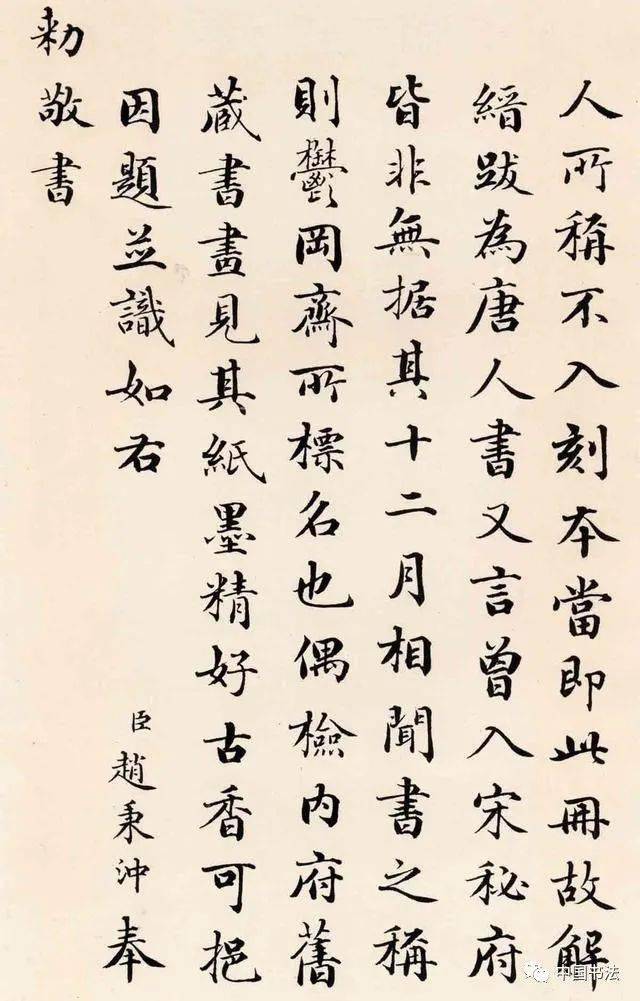 人所稱不入刻本當即此冊故解
縉跋為唐人書又言曾入宋秘府
皆非無据其十二月相聞書之稱
則鬱岡齋所標名也偶檢内府舊
蔵書畫見其紙墨精好古香可挹
因題並識如右
臣趙秉沖奉
勅敬書
中国书法